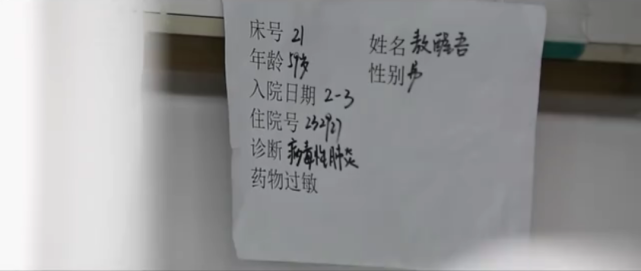 床号 21 姓名 敖醒吾
年龄 59岁 性别 男
入院日期 2-3
住院号 232927
诊断 病毒性肺炎
药物过敏